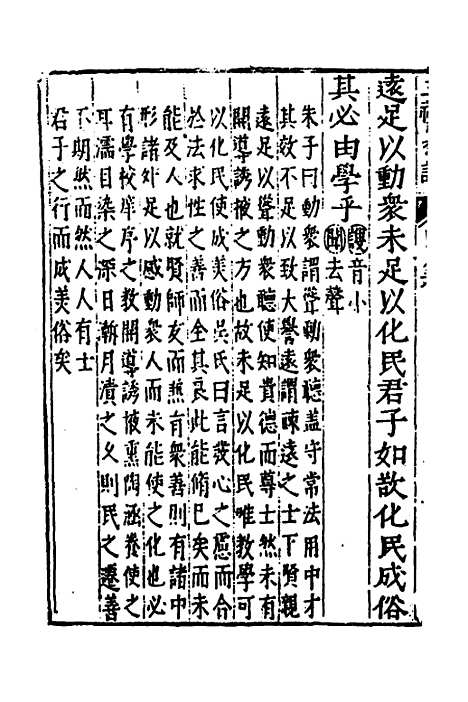 遠足以動衆未足以化民君子如欲化民成俗
其必由學乎謏音小聞去聲
朱子曰動衆謂聳動衆聽蓋守常法用中才
其效不足以致大譽遠謂踈遠之士下賢親
遠足以聳動衆聽使知貴德而尊士然未有
開導誘掖之方也故未足以化民唯教學可
以化民使成美俗吳氏曰言發心之慮而合
於法求性之善而全其良此能脩已矣而未
能及人也就賢師友而兼有衆善則有諸中
形諸外足以感動衆人而未能使之化也必
有學校庠序之教開導誘掖熏陶涵養使之
耳濡目染之深日漸月漬之久則民之遷善
不期然而然人人有士
君子之行而成美俗矣